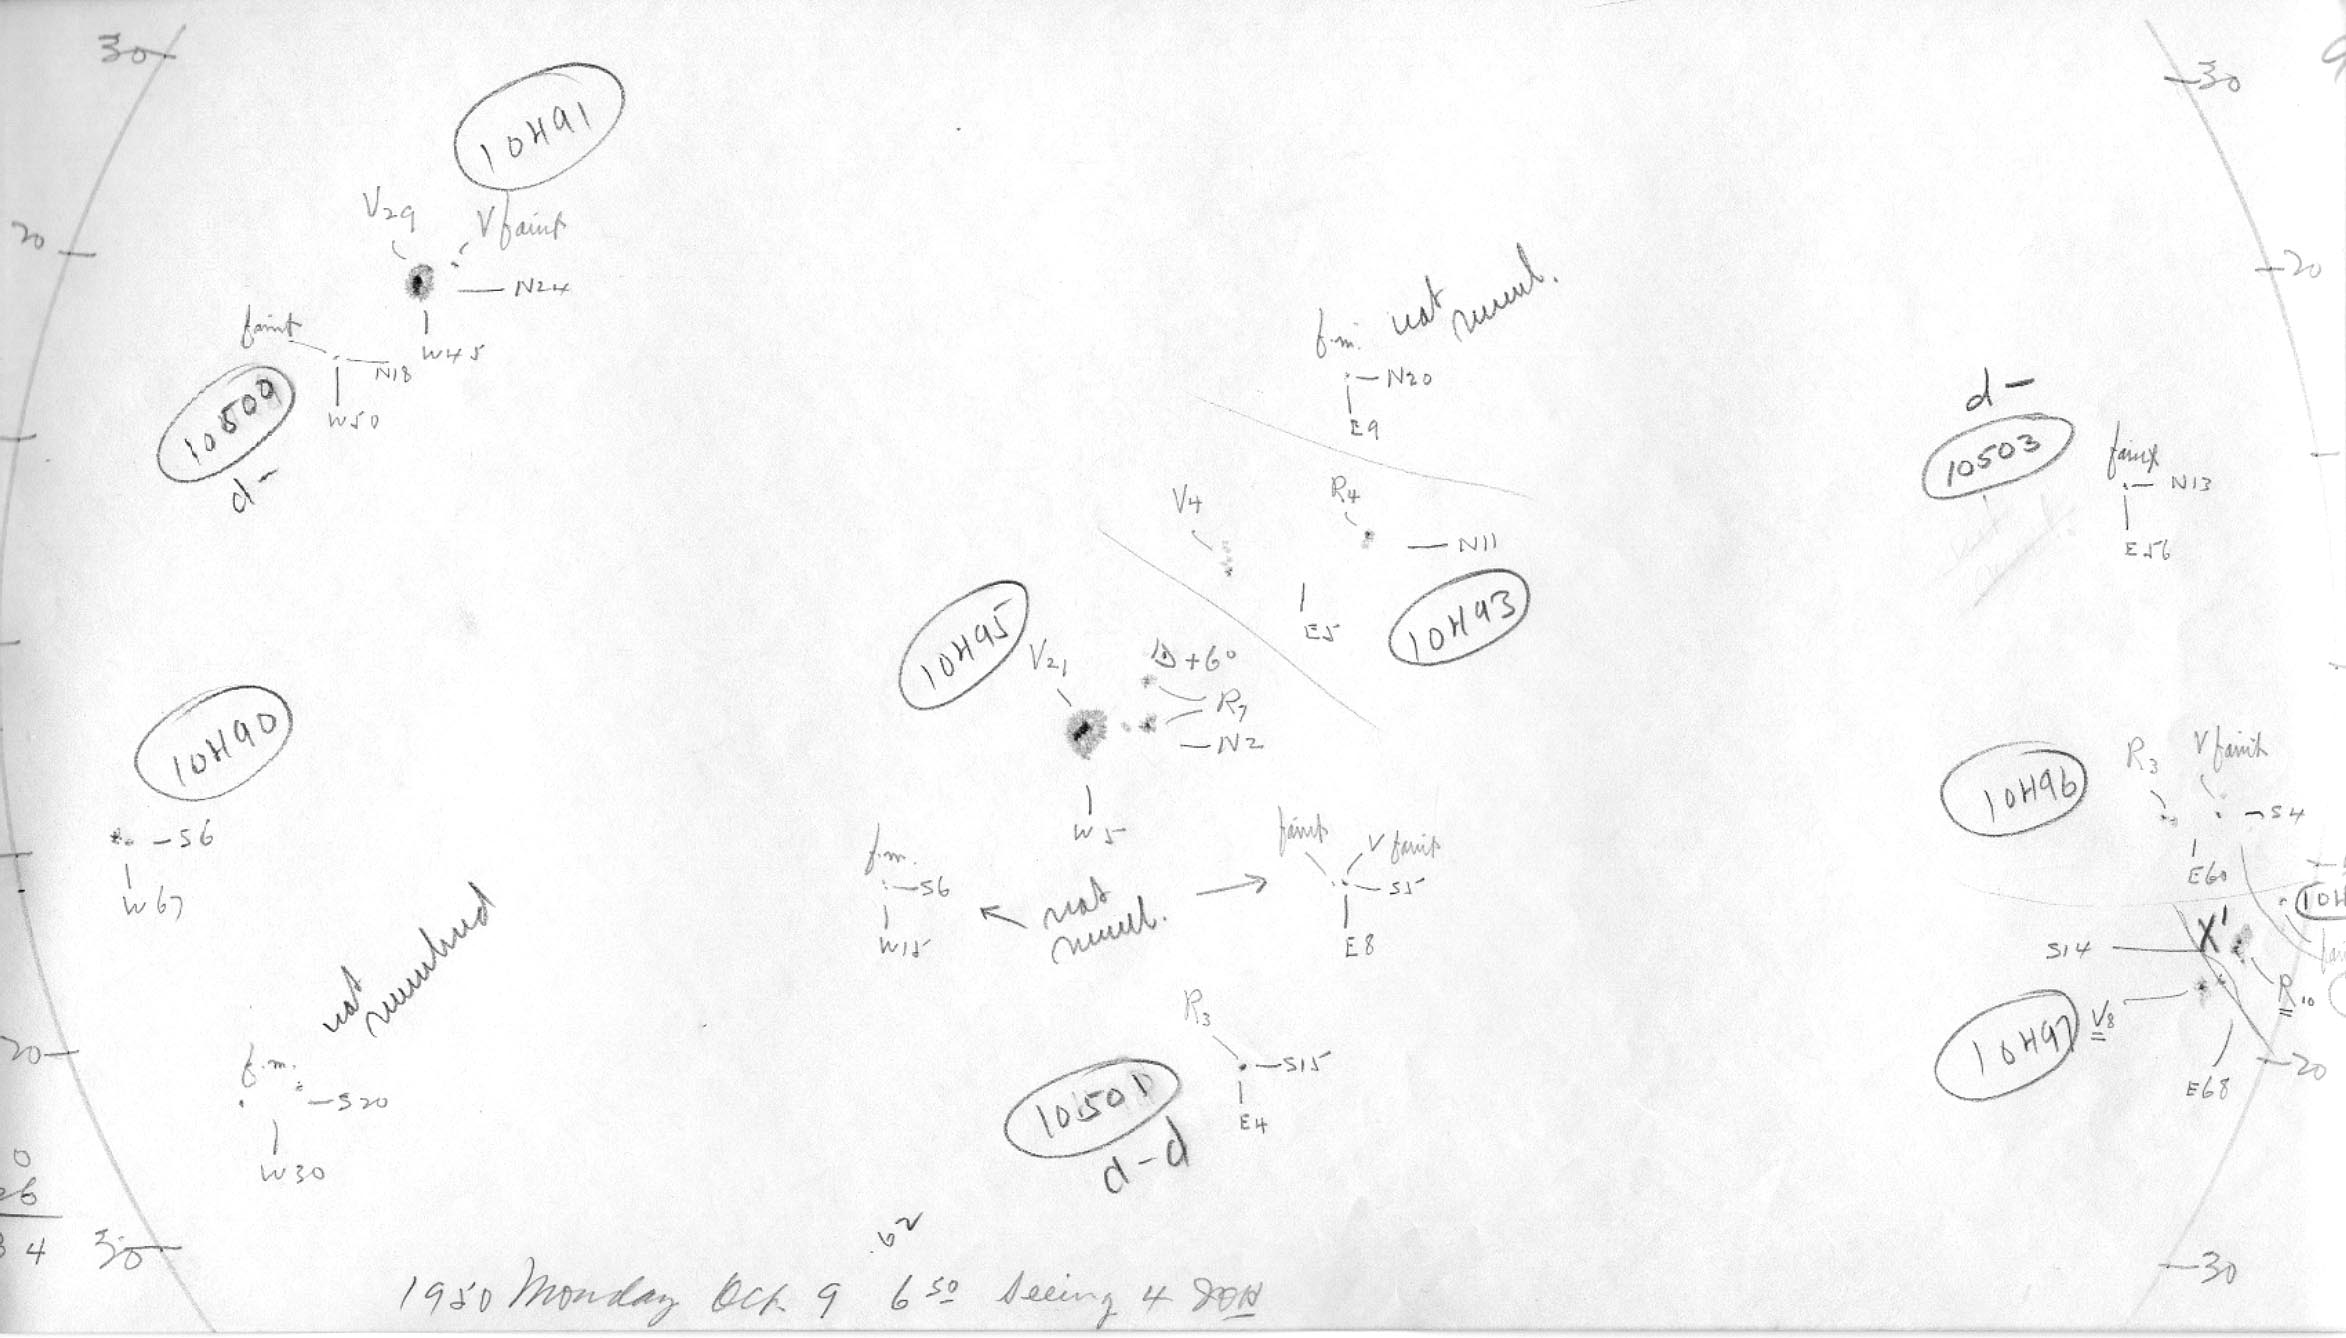 30
10491
V29
V faint
20
N24
faint
W45
N18
W50
10509
d-
10490
S6
W67
not numbered
20
f.m.
S20
W30
0
26
34
30
f.m. not numb.
N20
E9
V4
R4
N11
E5
10493
10495
V21
+6°
R7
N2
W5
f.m.
S6
W15
not numb.
faint
V faint
S5
E8
R3
S15
E4
10501
d-d
.62
1950 Monday Oct. 9 6 50 Seeing 4
30
20
d-
10503
faint
N13
E56
10496
R3
V faint
S4
E60
X'
S14
R10
10497
V8
20
E68
30